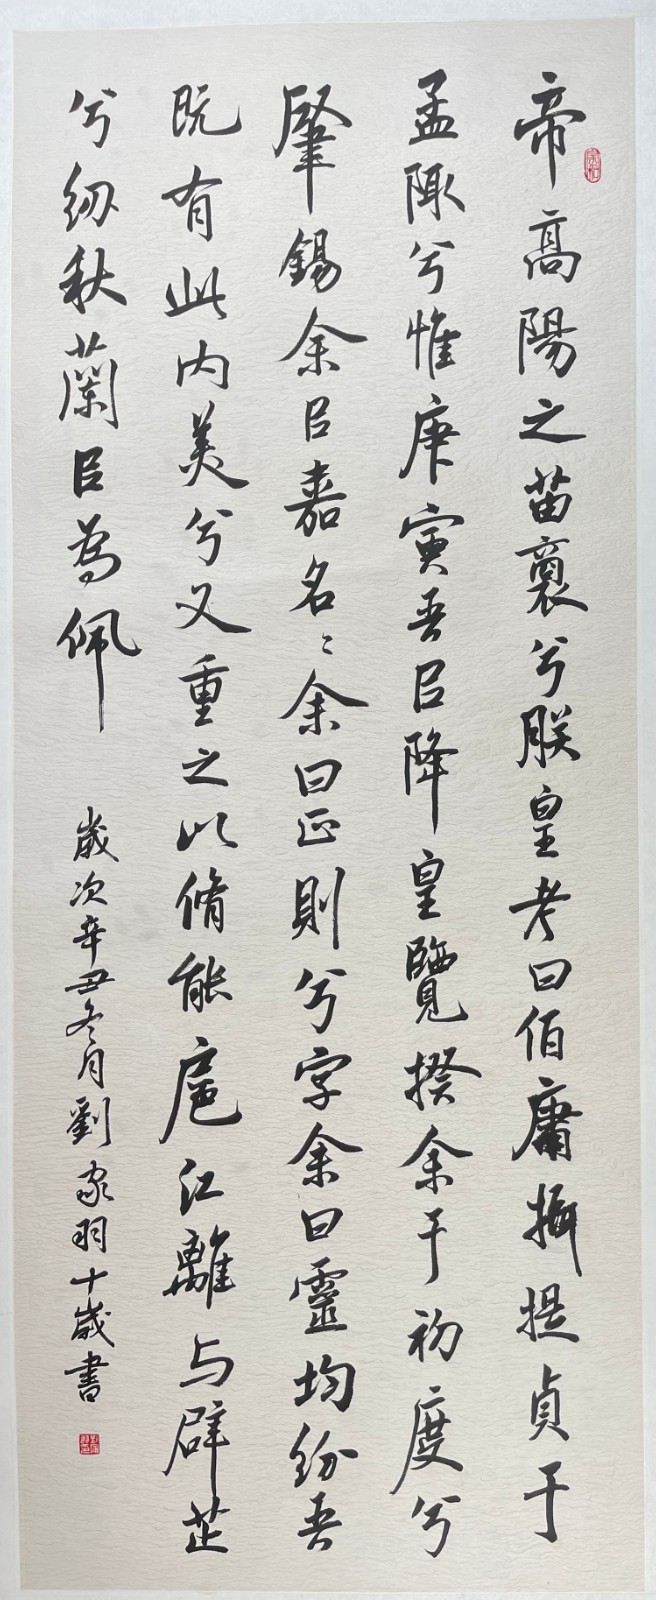 帝高陽之苗裔兮朕皇考曰伯庸攝提貞于
孟陬兮惟庚寅吾㠯降皇覽揆余于初度兮
肇錫余㠯嘉名〻余曰正則兮字余曰靈均紛吾
既有此内美兮又重之以脩能扈江離与辟芷
兮紉秋蘭㠯為佩
歲次辛丑冬月劉家羽十歲書